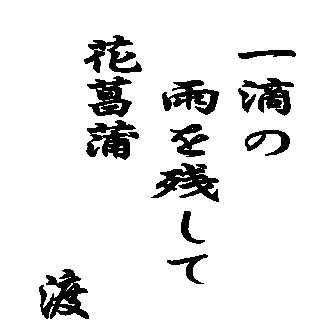 一滴の
雨を残して
花菖蒲
渡